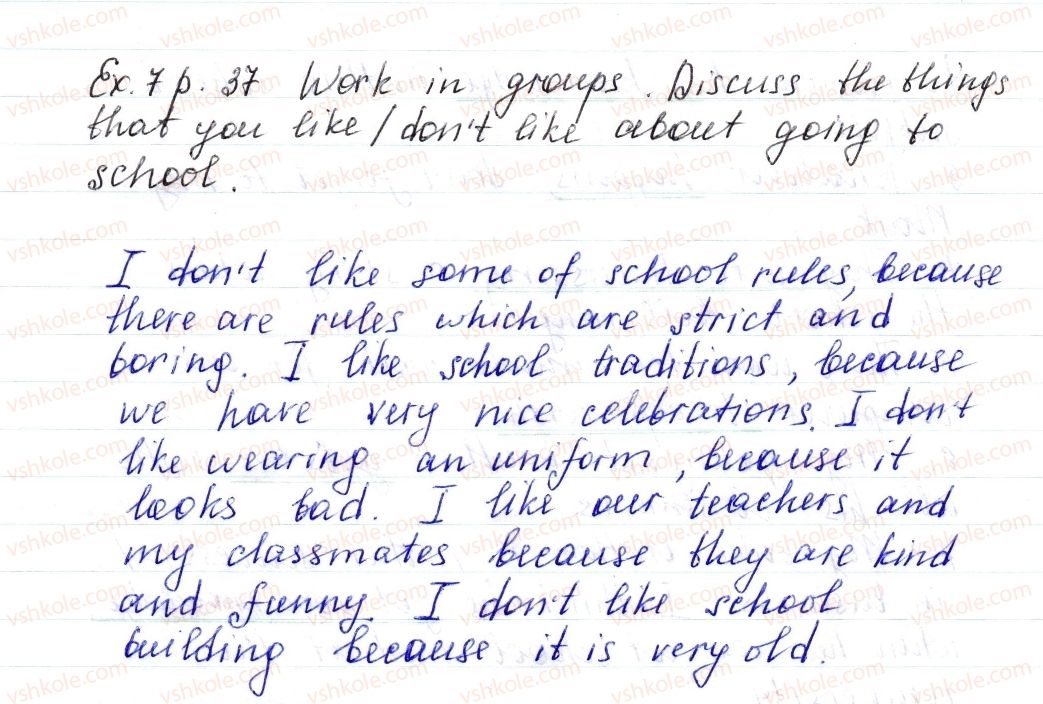 Ex. 7 p. 37 Work in groups. Discuss the things
that you like / don't like about going to
school.
I don't like some of school rules, because
there are rules which are strict and
boring. I like school traditions, because
we have very nice celebrations. I don't
like wearing an uniform, because it
looks bad. I like our teachers and
my classmates because they are kind
and funny. I don't like school
building because it is very old.